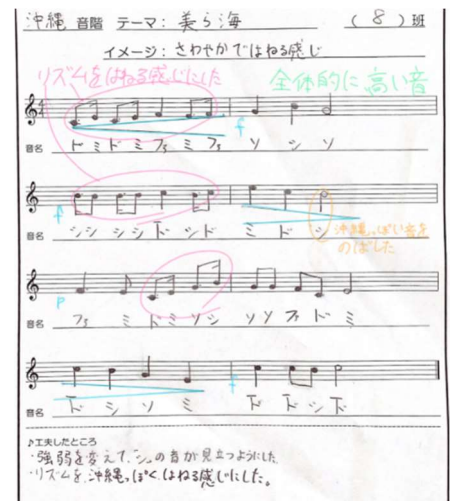 沖縄 音階 テーマ：美ら海 （8）班
イメージ：さわやかではねる感じ
リズムをはねる感じにした 全体的に高い音
4 f
音名 ド ミ ド ミ ファ ミ ファ ソ シ ソ
f
音名 シ シ シ シ ド シ ド ミ ド シ
沖縄っぽい音を
のばした
P
音名 ファ ミ ド ミ ソ シ ソ ソ ファ ド ミ
f
音名 ド シ ソ ミ ド ド シ ド
♪工夫したところ
・強弱を変えて、シの音が見立つようにした
・リズムを、沖縄っぽく、はねる感じにした。